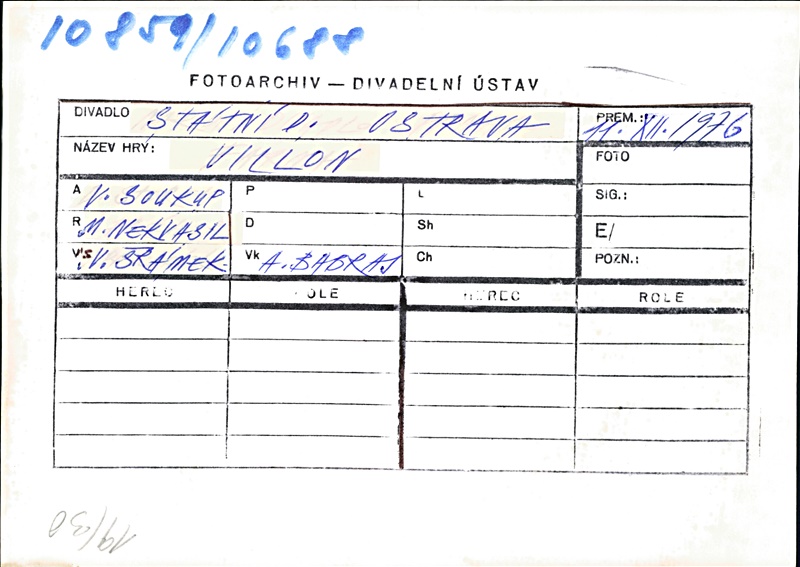 10859/10688
FOTOARCHIV — DIVADELNÍ ÚSTAV
DIVADLO STÁTNÍ D. OSTRAVA PREM.: 11. XII. 1976
NÁZEV HRY: VILLON FOTO
A V. SOUKUP P L SIG.:
R M. NEKVASIL D Sh E/
Vs V. ŠRÁMEK Vk A. BABRAJ Ch POZN.:
HEREC ROLE HEREC ROLE